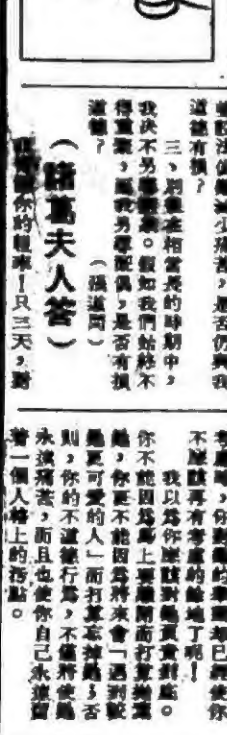 減少痛苦,是否仍與我
道德有損?
三、在相當長的時期中,
我決不另。假如我們始終不
得重聚,我另配偶,是否有損
道德? (張道同)
(諸葛夫人答)
你的來!只三天,對
你對她的却已經使你
不應該再有考慮的餘地了呢!
我以爲你應該對她負責到底。
你不能因爲馬上要離開而打算拋棄
她,你更不能因爲將來會「遇到較
她更可愛的人」而打算忘掉她;否
則,你的不道德行爲,不僅將使她
永遠痛苦,而且也使你自己永遠留
着一個人格上的污點。